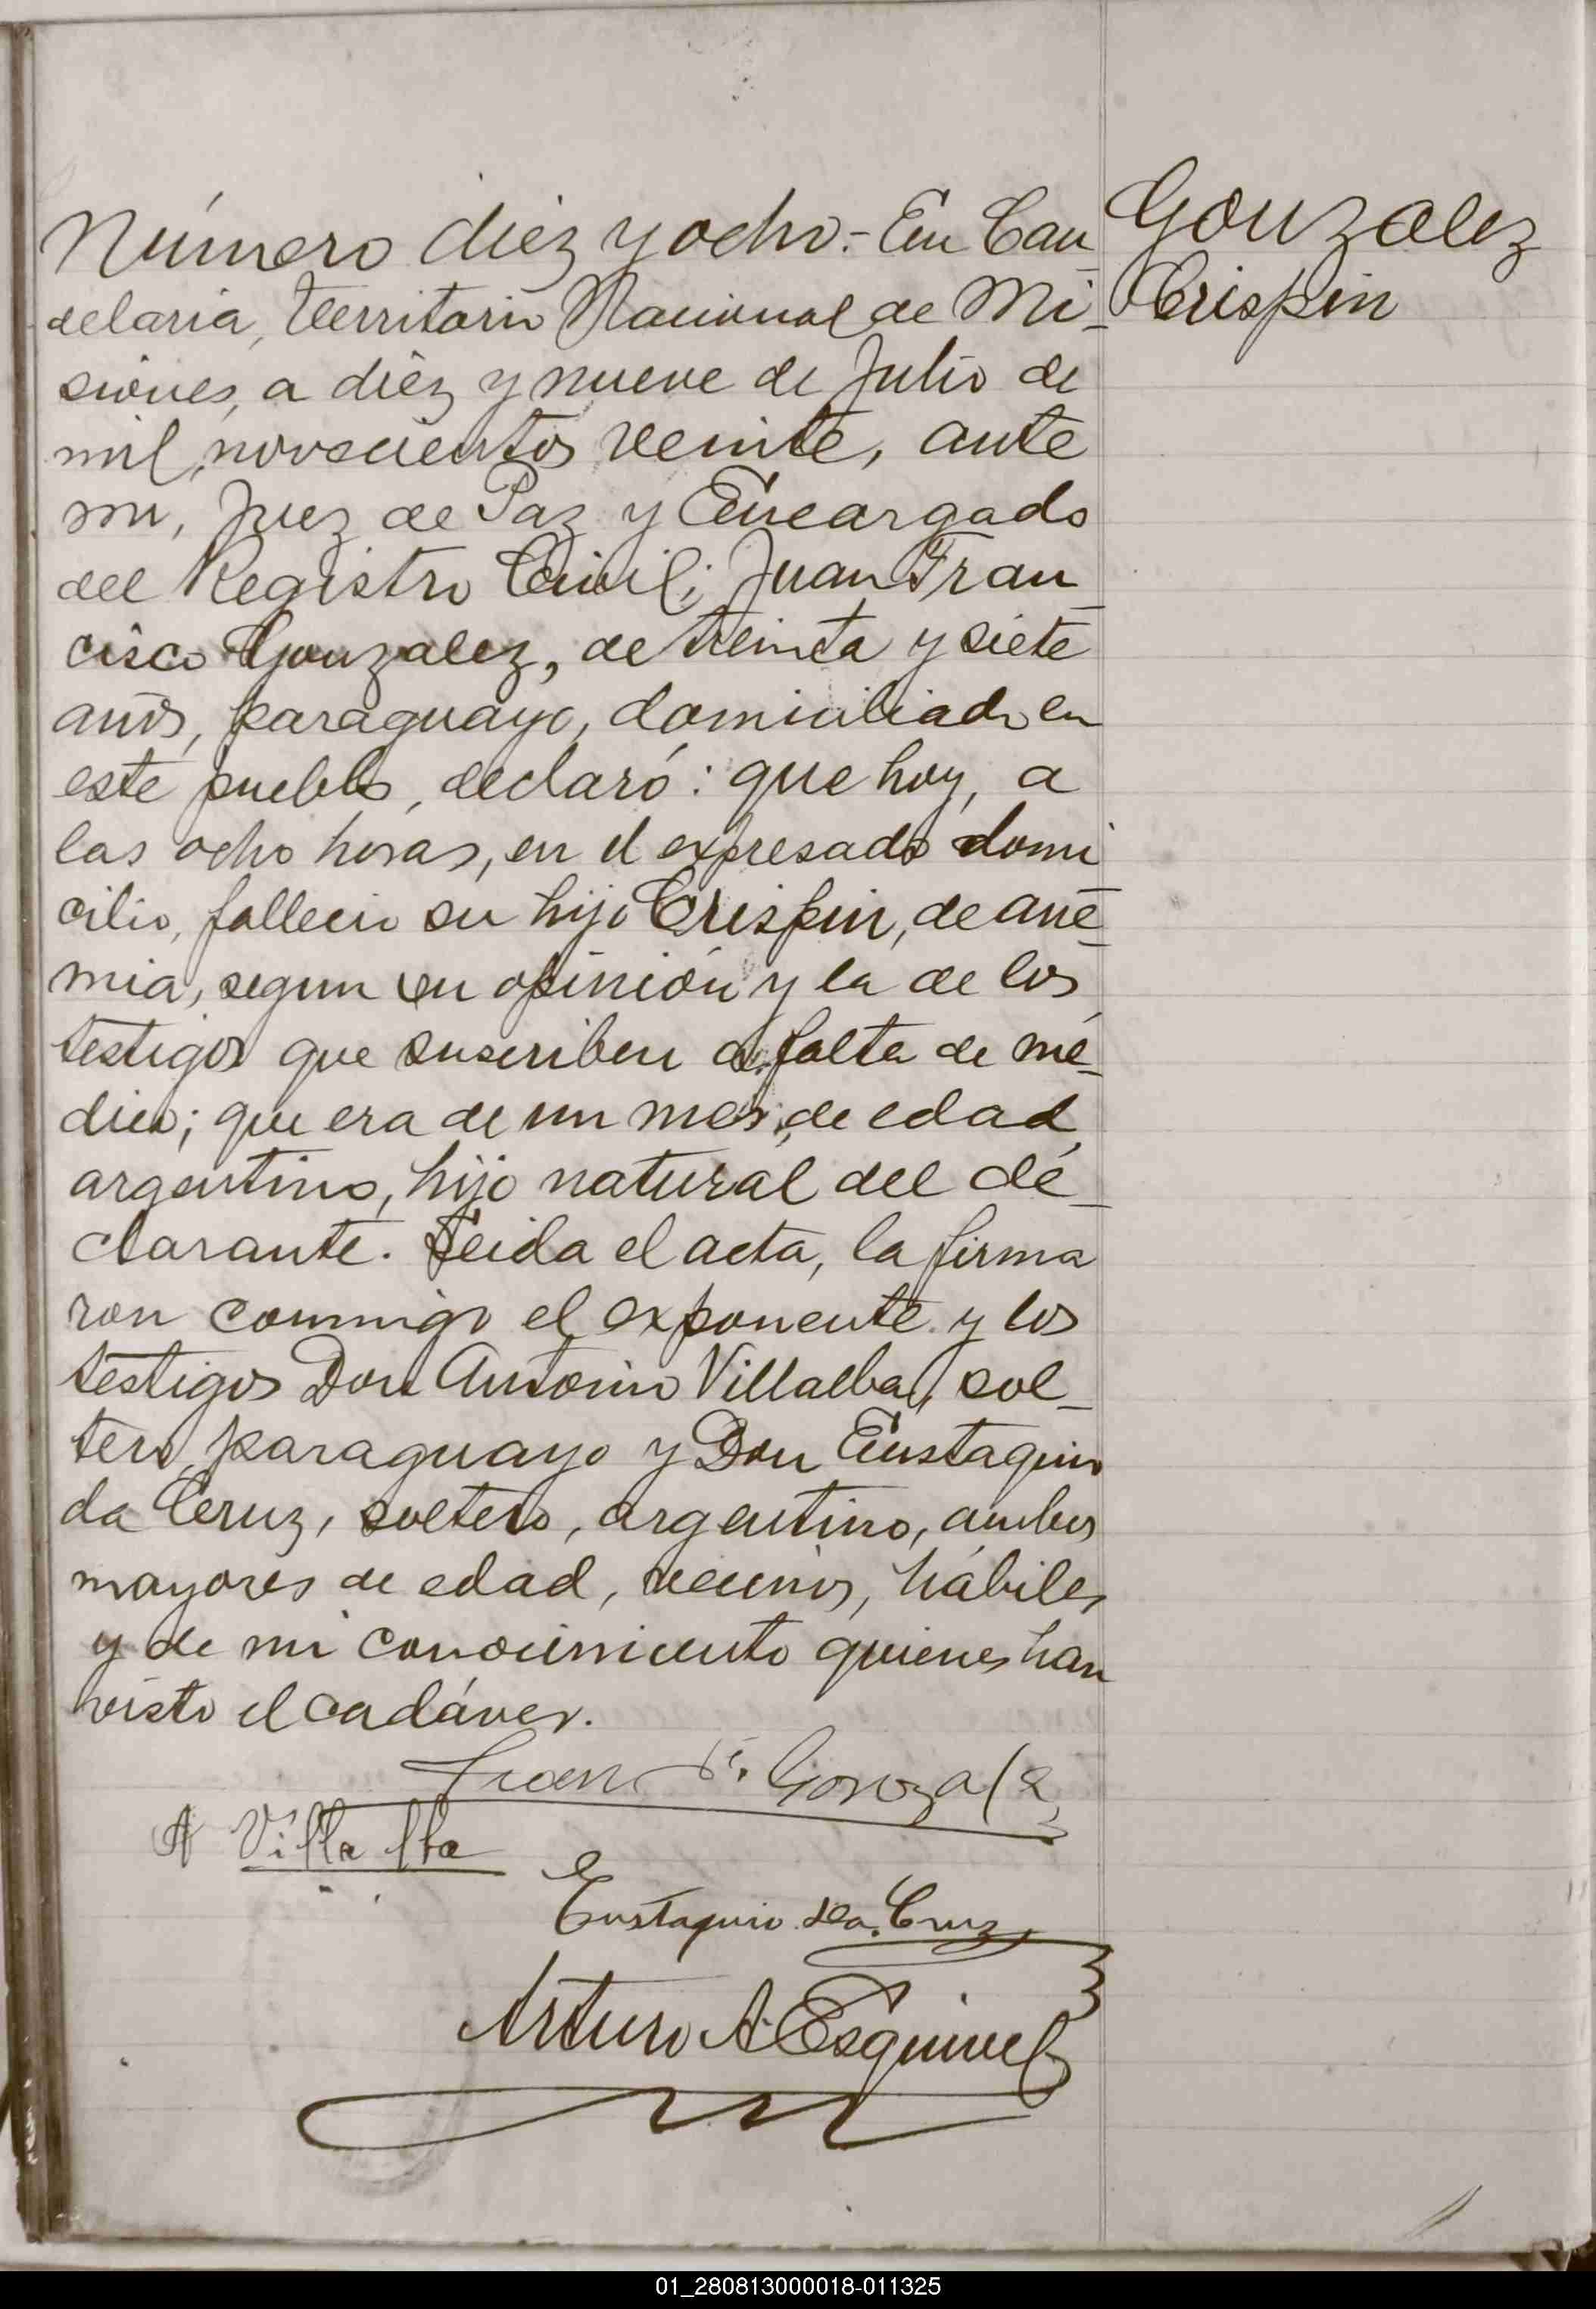 Número diez y ocho.- En Can_
delaria, Territorio Nacional de Mi_
siones, a diez y nueve de Julio de
mil novecientos veinte, ante
mi, Juez de Paz y Encargado
del Registro Civil; Juan Fran_
cisco Gonzalez, de treinta y siete
años, paraguayo, domiciliado en
este pueblo, declaró: que hoy, a
las ocho horas, en el expresado domi
cilio, fallecio su hijo Crispin, de ané_
mia, segun su opinión y la de los
testigos que suscriben a falta de mé_
dico; que era de un mes de edad,
argentino, hijo natural del de_
clarante. Leida el acta, la firma
ron conmigo el exponente y los
testigos Don Antonio Villalba, sol_
tero, paraguayo y Don Eustaquio
da Cruz, soltero, argentino, ambos
mayores de edad, vecinos, hábiles
y de mi conocimiento quienes han
visto el cadáver.
Gonzalez
Crispin
Juan F. Gonzalez
A Villalba
Eustaquio da Cruz
Arturo A. Esquivel
01_280813000018-011325